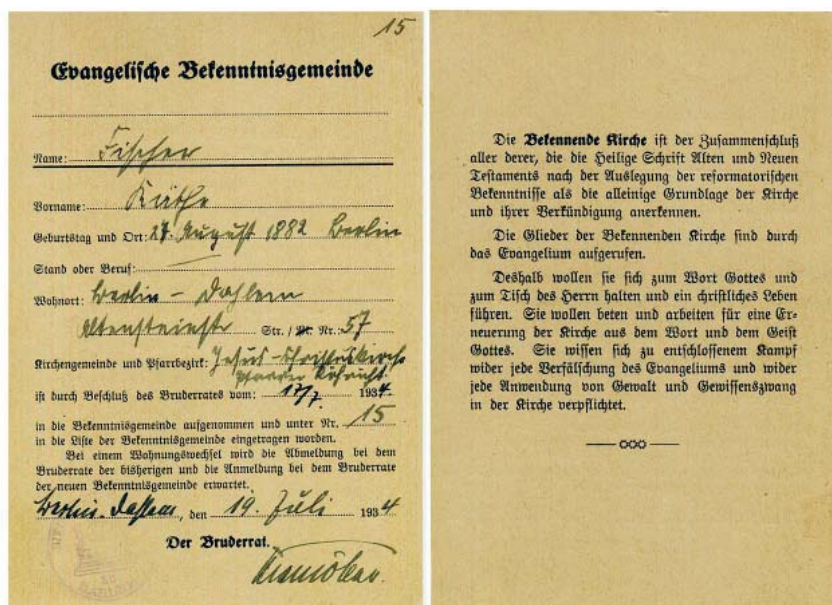 15
Evangelische Bekenntnisgemeinde
Name: Fischer
Vorname: Käthe
Geburtstag und Ort: 27. August 1882 Berlin
Stand oder Beruf: —
Wohnort: Berlin - Dahlem
Altensteinstr Str. / Pl. Nr.: 57
Kirchengemeinde und Pfarrbezirk: Jesus-Christuskirche
Pfarrer
ist durch Beschluß des Bruderrates vom: 17/7. 1934
in die Bekenntnisgemeinde aufgenommen und unter Nr. 15
in die Liste der Bekenntnisgemeinde eingetragen worden.
Bei einem Wohnungswechsel wird die Abmeldung bei dem
Bruderrate der bisherigen und die Anmeldung bei dem Bruderrate
der neuen Bekenntnisgemeinde erwartet.
Berlin-Dahlem, den 19. Juli 1934
Der Bruderrat.
Die Bekennende Kirche ist der Zusammenschluß
aller derer, die die Heilige Schrift Alten und Neuen
Testaments nach der Auslegung der reformatorischen
Bekenntnisse als die alleinige Grundlage der Kirche
und ihrer Verkündigung anerkennen.
Die Glieder der Bekennenden Kirche sind durch
das Evangelium aufgerufen.
Deshalb wollen sie sich zum Wort Gottes und
zum Tisch des Herrn halten und ein christliches Leben
führen. Sie wollen beten und arbeiten für eine Er-
neuerung der Kirche aus dem Wort und dem Geist
Gottes. Sie wissen sich zu entschlossenem Kampf
wider jede Verfälschung des Evangeliums und wider
jede Anwendung von Gewalt und Gewissenszwang
in der Kirche verpflichtet.